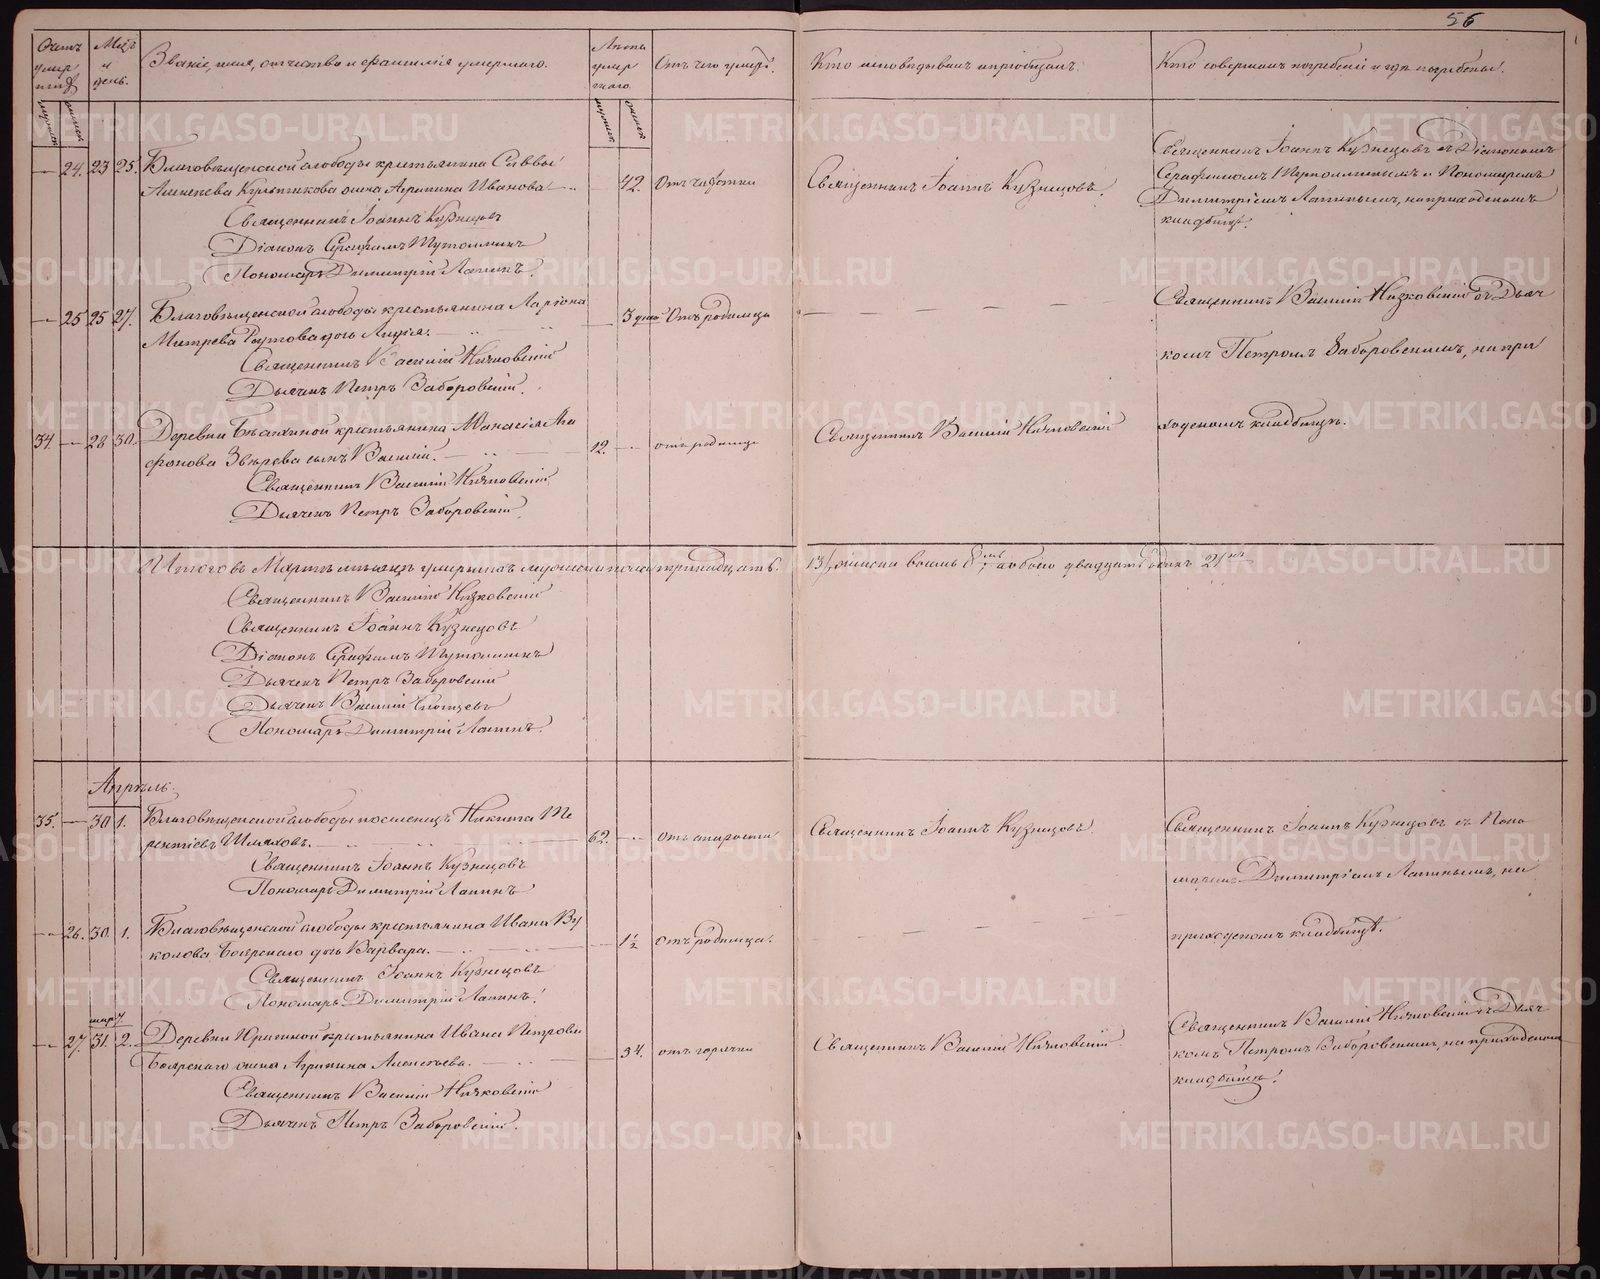 56
Счетъ умершихъ
Мѣс. и день.
Званіе, имя, отчество и фамилія умершаго.
Лѣта умершаго.
Отъ чего умеръ.
Кто исповѣдывалъ и пріобщалъ.
Кто совершалъ погребеніе и гдѣ погребены.
— 24. 23 25. Благовѣщенской слободы крестьянина Саввы
Алексѣева жена Агрипина Иванова — 42. Отъ чахотки
Священникъ Іоаннъ Кузнецовъ.
Священникъ Іоаннъ Кузнецовъ съ Діакономъ
Серафимомъ и Пономаремъ
Димитріемъ Лапинымъ, на приходскомъ
кладбищѣ.
Священникъ Іоаннъ Кузнецовъ
Діаконъ Серафимъ
Пономарь Димитрій Лапинъ.
— 25 25 27. Благовѣщенской слободы крестьянина Ларіона
Митрева дочь Лидія. — 3 дней Отъ родимца
Священникъ Василій Низковскій съ Дьяч
комъ Петромъ Заборовскимъ, на при
ходскомъ кладбищѣ.
Священникъ Василій Низковскій
Дьячекъ Петръ Заборовскій.
34. — 28 30. Деревни крестьянина Аѳанасія Ага
фонова Звѣрева сынъ Василій. — 12. — отъ родимца
Священникъ Василій Низковскій
Священникъ Василій Низковскій
Дьячекъ Петръ Заборовскій.
Итого въ Мартѣ мѣсяцѣ умершихъ мужеска пола тринадцать. 13, женска восемь 8, а обоего двадцать одинъ 21
Священникъ Василій Низковскій
Священникъ Іоаннъ Кузнецовъ
Діаконъ Серафимъ
Дьячекъ Петръ Заборовскій
Дьячекъ Василій
Пономарь Димитрій Лапинъ.
Апрѣль.
35. — 30 1. Благовѣщенской слободы поселенецъ Никита Те
рентіевъ Шляховъ. — 62. — отъ старости
Священникъ Іоаннъ Кузнецовъ
Священникъ Іоаннъ Кузнецовъ съ Поно
маремъ Димитріемъ Лапинымъ, на
приходскомъ кладбищѣ.
Священникъ Іоаннъ Кузнецовъ
Пономарь Димитрій Лапинъ
— 26. 30. 1. Благовѣщенской слободы крестьянина Ивана Ву
колова Боярскаго дочь Варвара. — 1½ отъ родимца.
Священникъ Іоаннъ Кузнецовъ
Пономарь Димитрій Лапинъ.
марта
— 27. 31. 2. Деревни крестьянина Ивана Петрова
Боярскаго жена Агрипина Алексѣева. — 34. отъ горячки
Священникъ Василій Низковскій.
Священникъ Василій Низковскій съ Дьяч
комъ Петромъ Заборовскимъ, на приходскомъ
кладбищѣ.
Священникъ Василій Низковскій
Дьячекъ Петръ Заборовскій.
METRIKI.GASO-URAL.RU